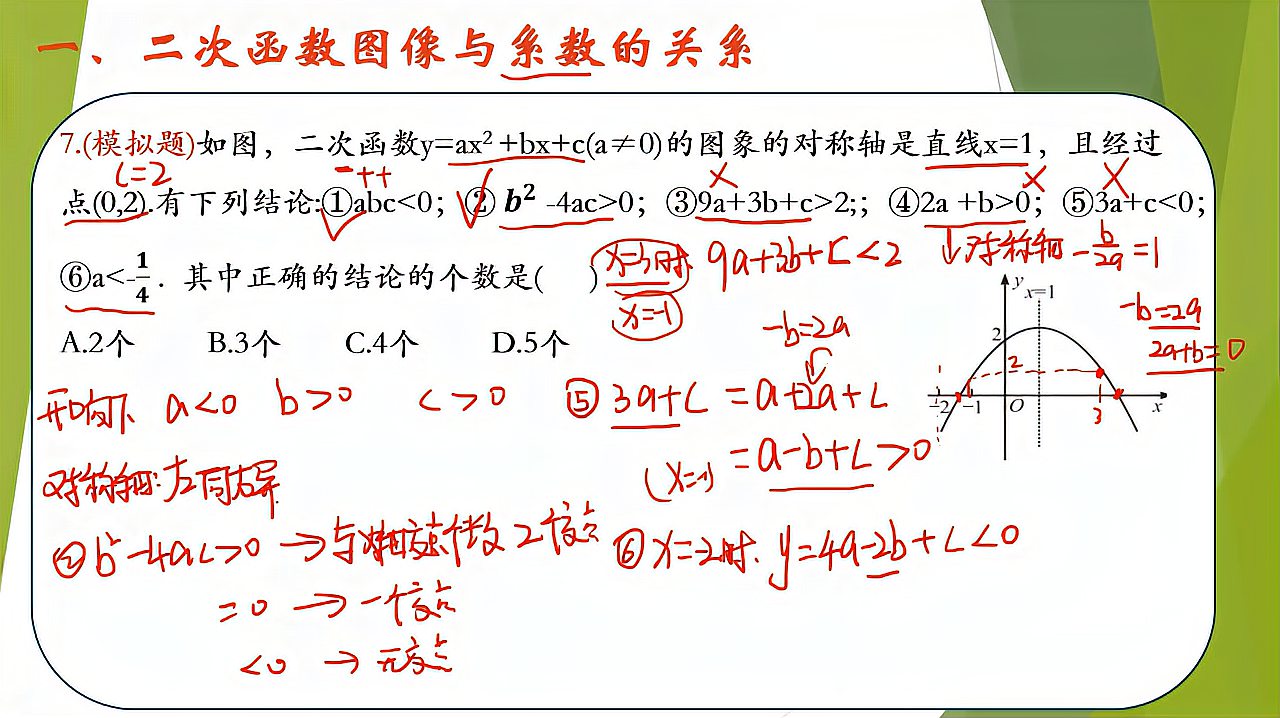 一、二次函数图像与系数的关系
7.(模拟题)如图，二次函数y=ax²+bx+c(a≠0)的图象的对称轴是直线x=1，且经过
c=2
- + +
点(0,2).有下列结论:①abc<0；② b² -4ac>0；③9a+3b+c>2;；④2a +b>0；⑤3a+c<0；
⑥a<-1/4．其中正确的结论的个数是(   )
x=3时 9a+3b+c<2
x=-1
对称轴 -b/2a=1
-b=2a
2a+b=0
A.2个 B.3个 C.4个 D.5个
y
x=1
2
2
-2 -1 O 3 x
开口向下 a<0 b>0 c>0
-b=2a
⑤ 3a+c = a+2a+c
= a-b+c>0
(x=-1)
对称轴:左同右异
② b²-4ac>0 → 与x轴交点个数 2个交点
=0 → 一个交点
<0 → 无交点
⑥ x=-2时. y=4a-2b+c<0